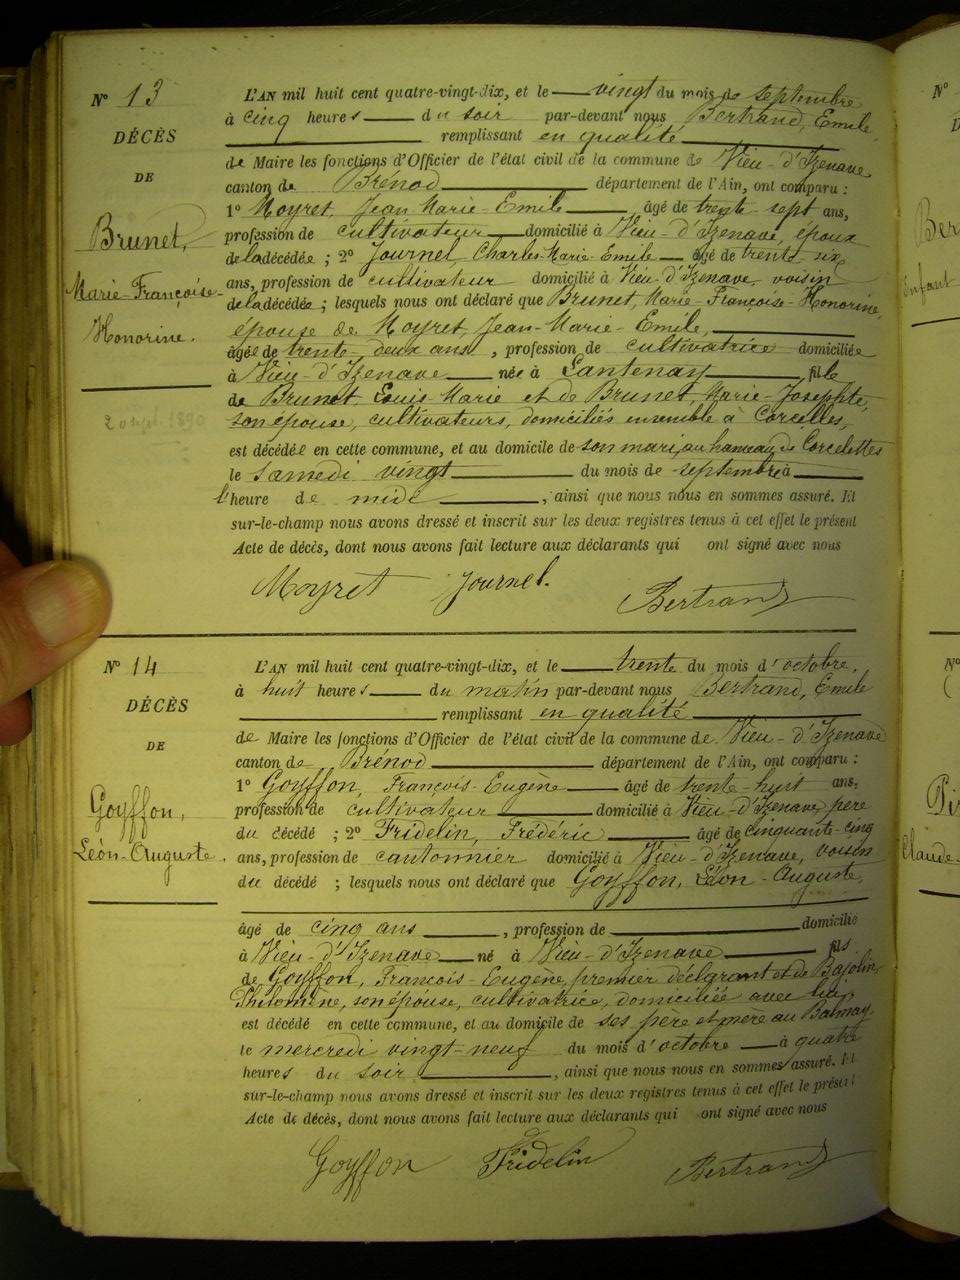 N° 13
DÉCÈS
DE
Brunet,
Marie-Françoise-
Honorine.
L'AN mil huit cent quatre-vingt-dix, et le vingt du mois de septembre
à cinq heures du soir par-devant nous Bertrand, Emile
remplissant en qualité
de Maire les fonctions d'Officier de l'état civil de la commune de Vieu-d'Izenave
canton de Brénod département de l'Ain, ont comparu :
1° Moyret, Jean-Marie-Emile âgé de trente-sept ans,
profession de cultivateur domicilié à Vieu-d'Izenave, époux
de la décédée ; 2° Journel, Charles-Marie-Emile âgé de trente-six
ans, profession de cultivateur domicilié à Vieu-d'Izenave, voisin
de la décédée ; lesquels nous ont déclaré que Brunet, Marie-Françoise-Honorine,
épouse de Moyret, Jean-Marie-Emile,
âgée de trente-deux ans, profession de cultivatrice domiciliée
à Vieu-d'Izenave née à Lantenay, fille
de Brunet, Louis-Marie et de Brunet, Marie-Josephte,
son épouse, cultivateurs, domiciliés ensemble à Corcelles,
est décédée en cette commune, et au domicile de son mari, au hameau de Corcelettes
le samedi vingt du mois de septembre à
l'heure de midi, ainsi que nous nous en sommes assuré. Et
sur-le-champ nous avons dressé et inscrit sur les deux registres tenus à cet effet le présent
Acte de décès, dont nous avons fait lecture aux déclarants qui ont signé avec nous
Moyret Journel. Bertrand
N° 14
DÉCÈS
DE
Goyffon,
Léon-Auguste.
L'AN mil huit cent quatre-vingt-dix, et le trente du mois d'octobre,
à huit heures du matin par-devant nous Bertrand, Emile
remplissant en qualité
de Maire les fonctions d'Officier de l'état civil de la commune de Vieu-d'Izenave
canton de Brénod département de l'Ain, ont comparu :
1° Goyffon, François-Eugène âgé de trente-huit ans,
profession de cultivateur domicilié à Vieu-d'Izenave, père
du décédé ; 2° Fridelin, Frédéric âgé de cinquante-cinq
ans, profession de cantonnier domicilié à Vieu-d'Izenave, voisin
du décédé ; lesquels nous ont déclaré que Goyffon, Léon-Auguste,
âgé de cinq ans, profession de domicilié
à Vieu-d'Izenave né à Vieu-d'Izenave fils
de Goyffon, François-Eugène, premier déclarant et de Bajolin,
Philomène, son épouse, cultivatrice, domiciliée avec lui,
est décédé en cette commune, et au domicile de ses père et mère au Balmay,
le mercredi vingt-neuf du mois d'octobre à quatre
heures du soir, ainsi que nous nous en sommes assuré. Et
sur-le-champ nous avons dressé et inscrit sur les deux registres tenus à cet effet le présent
Acte de décès, dont nous avons fait lecture aux déclarants qui ont signé avec nous
Goyffon Fridelin Bertrand